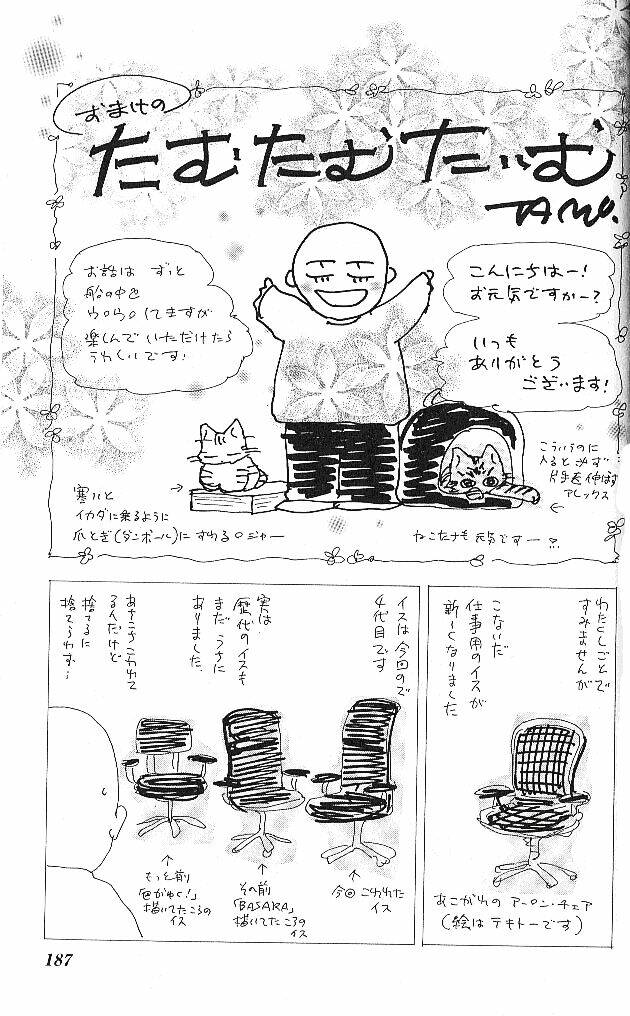 おまけの
たむたむたいむ
TAMU.
こんにちはー！
お元気ですかー？
いつも
ありがとう
ございます！
お話は ずっと
船の中で
ウロウロしてますが
楽しんでいただけたら
うれしいです！
寒いと
イカダに乗るように
爪とぎ(ダンボール)に すわるロジャー
こういうのに
入ると必ず
片手を伸ばす
アレックス
ねこたちも 元気ですー
わたくしごとで
すみませんが
こないだ
仕事用のイスが
新しくなりました
あこがれの アーロン・チェア
(絵は テキトーです)
イスは 今回ので
4代目です
実は
歴代のイスも
まだ うちに
ありました
あちこちこわれて
るんだけど
捨てるに
捨てられず…
今回 こわれた
イス
その前
「BASARA」
描いてたころの
イス
もっと前
描いてたころの
イス
187